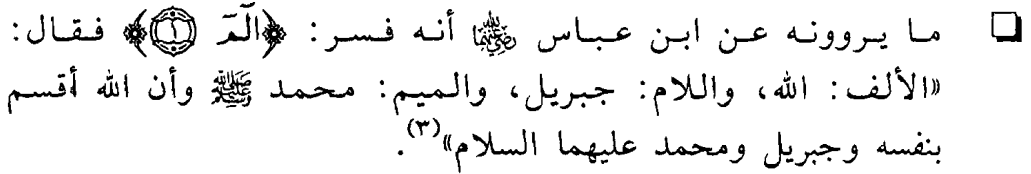 ❏ ما يروونه عن ابن عباس رضي الله عنهما أنه فسر: ﴿الٓمٓ ۝١﴾ فقال:
«الألف: الله، واللام: جبريل، والميم: محمد ﷺ وأن الله أقسم
بنفسه وجبريل ومحمد عليهما السلام»(٣).